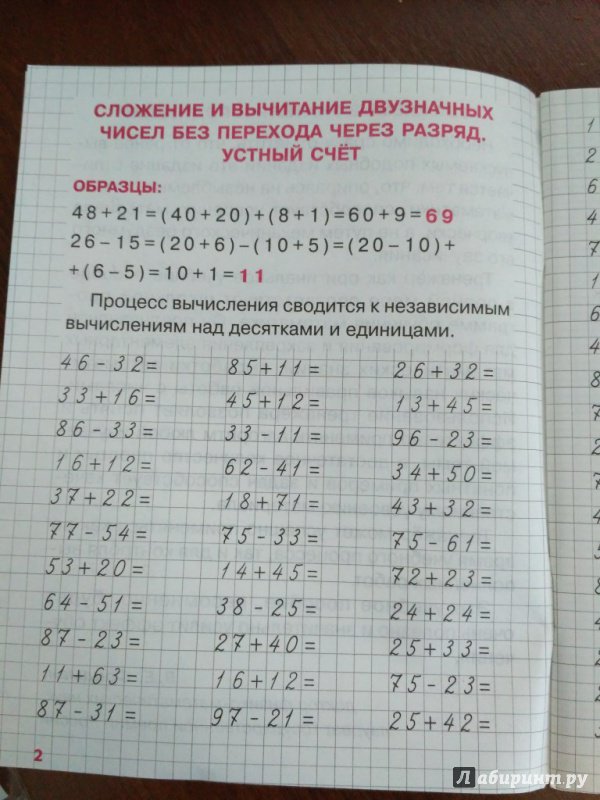 СЛОЖЕНИЕ И ВЫЧИТАНИЕ ДВУЗНАЧНЫХ
ЧИСЕЛ БЕЗ ПЕРЕХОДА ЧЕРЕЗ РАЗРЯД.
УСТНЫЙ СЧЁТ
ОБРАЗЦЫ:
48+21=(40+20)+(8+1)=60+9=69
26-15=(20+6)-(10+5)=(20-10)+
+(6-5)=10+1=11
Процесс вычисления сводится к независимым
вычислениям над десятками и единицами.
46-32= 85+11= 26+32=
33+16= 45+12= 13+45=
86-33= 33-11= 96-23=
16+12= 62-41= 34+50=
37+22= 18+71= 43+32=
77-54= 75-33= 75-61=
53+20= 14+45= 72+23=
64-51= 38-25= 24+24=
87-23= 27+40= 25+33=
11+63= 16+12= 75-23=
87-31= 97-21= 25+42=
2
Лабиринт.ру